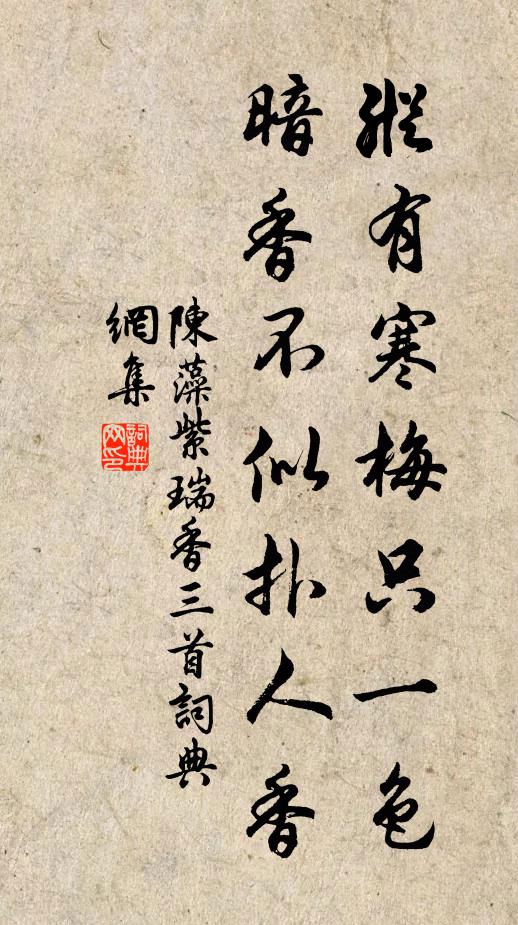 縱有寒梅只一色
暗香不似扑人香
陳藻紫瑞香三首詞典
網集
詞典
网印